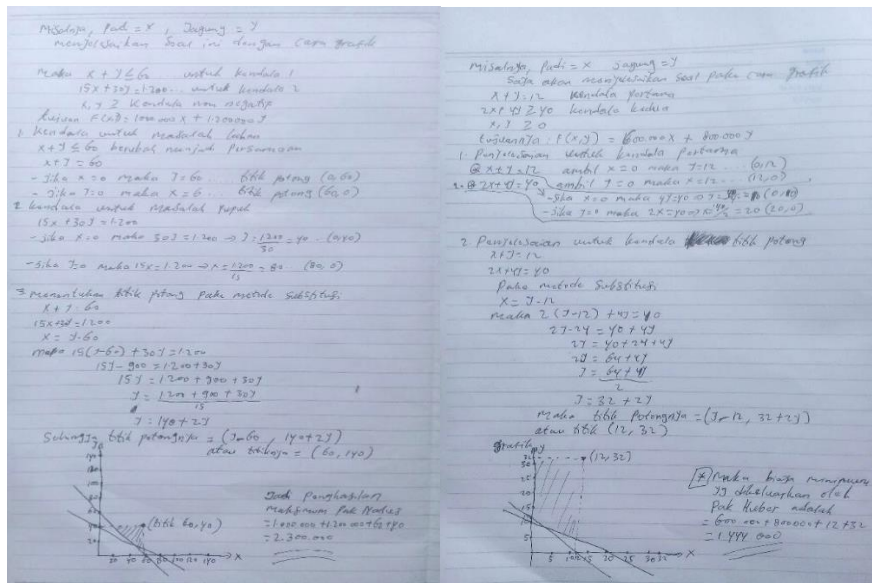 Misalnya, Padi = x, Jagung = y
menyelesaikan Soal ini dengan cara grafik
maka x + y ≤ 60 untuk kendala 1
15x + 30y = 1.200... untuk kendala 2
x, y ≥ kendala non negatif
tujuan F(x,y) = 1.000.000 x + 1.200.000 y
1. kendala untuk masalah lahan
x + y ≤ 60 berubah menjadi Persamaan
x + y = 60
- Jika x = 0 maka y = 60... titik potong (0,60)
- Jika y = 0 maka x = 6... titik potong (60,0)
2. kendala untuk masalah pupuk
15x + 30y = 1.200
- Jika x = 0 maka 30y = 1.200 → y = 1200/30 = 40 ... (0,40)
- Jika y = 0 maka 15x = 1.200 → x = 1200/15 = 80 ... (80,0)
3. menentukan titik potong pake metode substitusi
x + y = 60
15x + 30y = 1.200
x = y-60
maka 15(y-60) + 30y = 1.200
15y - 900 = 1.200 + 30y
15y = 1200 + 900 + 30y
y = 1.200 + 900 + 30y / 15
y = 140 + 2y
Sehingga titik potongnya = (y-60, 140+2y)
atau titiknya = (60, 140)
(titik 60,40)
20 40 60 80 100 120 140 x
Jadi Penghasilan
maksimum Pak
= 1.000.000 + 1.200.000 + 60 + 40
= 2.300.000
Misalnya, Padi = x Jagung = y
Saya akan menyelesaikan soal pake cara grafik
x + y = 12 kendala pertama
2x + 4y ≥ 40 kendala kedua
x, y ≥ 0
tujuannya : F(x,y) = 600.000 x + 800.000 y
1. Penyelesaian untuk kendala Pertama
@ x + y = 12 ambil x = 0 maka y = 12 ... (0,12)
ambil y = 0 maka x = 12 ... (12,0)
2. @ 2x + 4y = 40
- Jika x = 0 maka 4y = 40
- Jika y = 0 maka 2x = 40 → x = 40/2 = 20 (20,0)
2. Penyelesaian untuk kendala titik potong
x + y = 12
2x + 4y = 40
Pake metode Substitusi
x = y - 12
maka 2(y-12) + 4y = 40
2y - 24 = 40 + 4y
2y = 40 + 24 + 4y
2y = 64 + 4y
y = 64 + 4y / 2
y = 32 + 2y
maka titik potongnya = (y-12, 32+2y)
atau titik (12, 32)
grafik y
(12,32)
5 10 12 15 20 25 30 32 x
* maka biaya minimum
yg dikeluarkan oleh
Pak Kubos adalah
= 600.000 + 800000 + 12 + 32
= 1.444 000